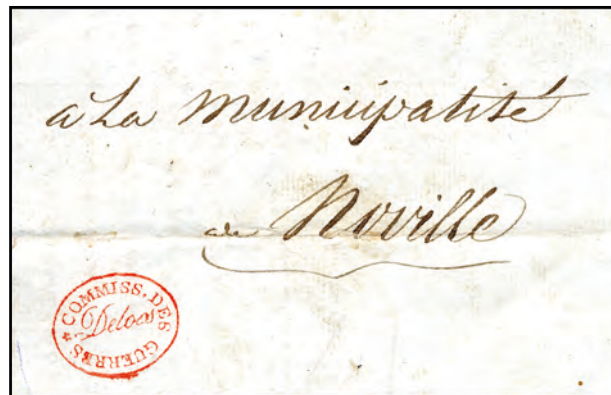 a La Municipalité
de Noville
COMMISS. DES GUERRES
Deloës